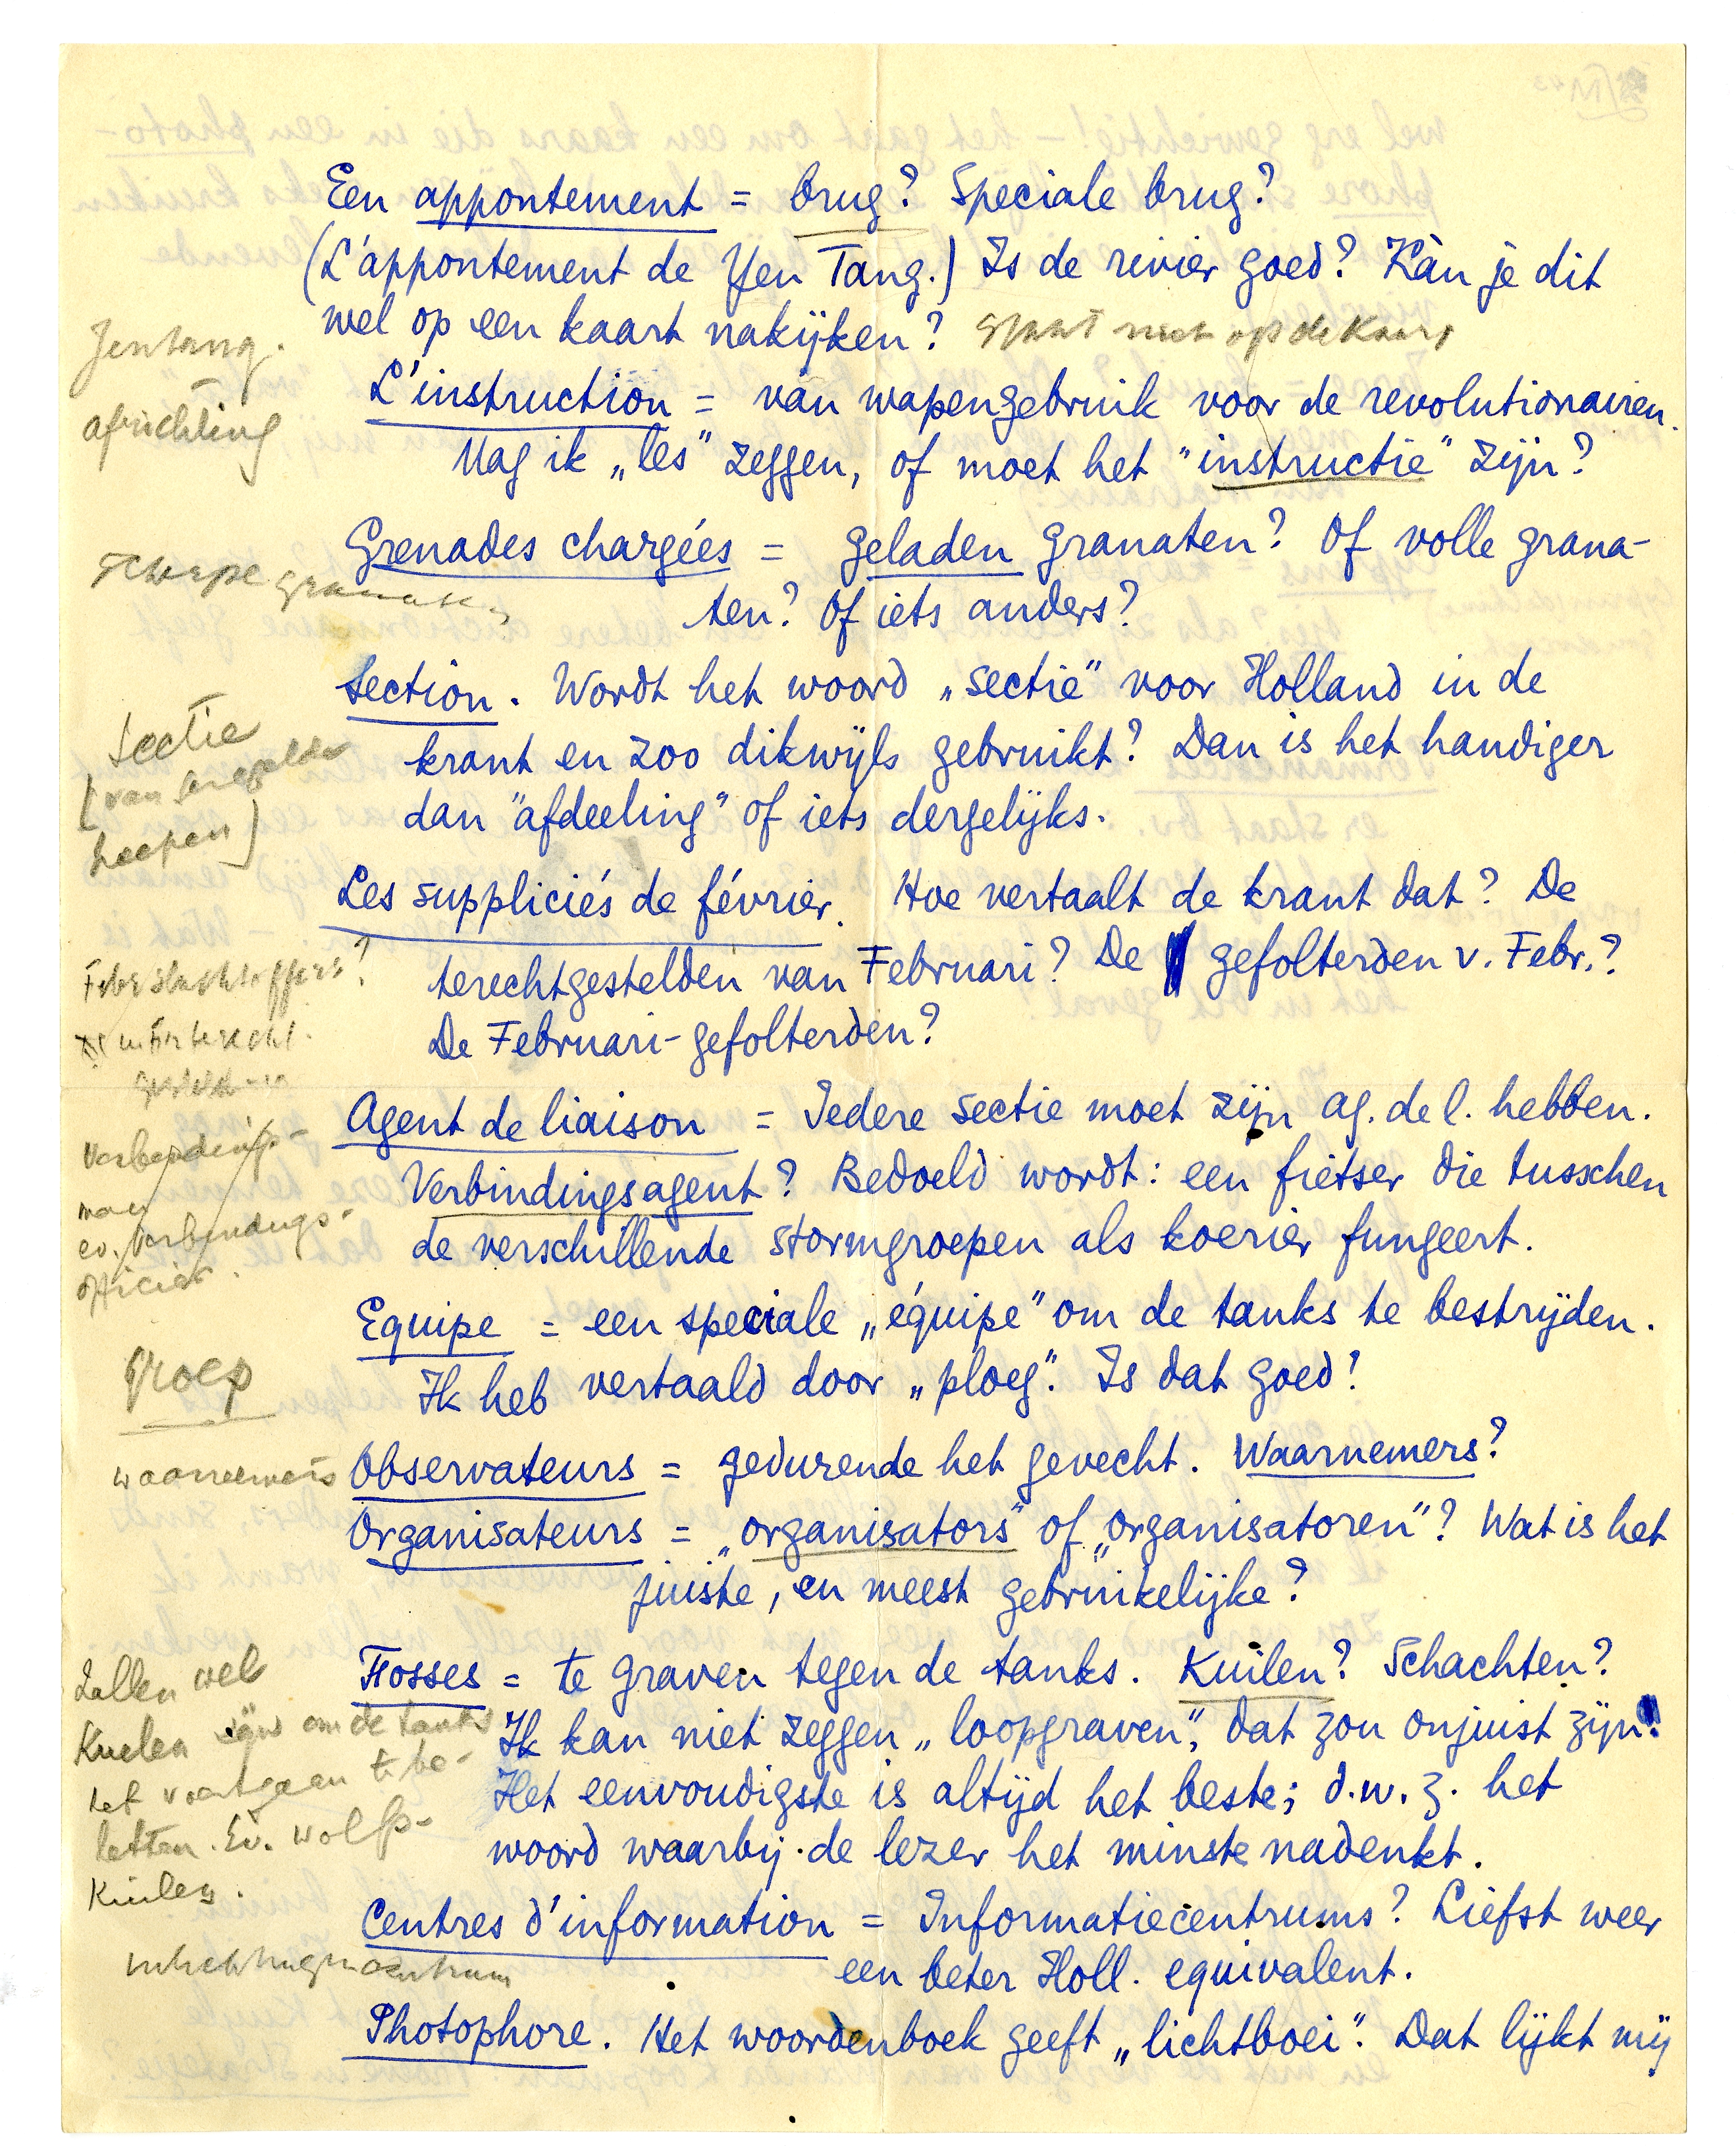 Een appontement = brug? Speciale brug?
(L'appontement de Yen Tang.) Is de rivier goed? Kàn je dit
wel op een kaart nakijken? Staat niet op de Kaart
Jentang.
L'instruction = van wapengebruik voor de revolutionairen.
africhting
Mag ik „les" zeggen, of moet het "instructie" zijn?
Grenades chargées = geladen granaten? Of volle grana-
scherpe granaten
ten? Of iets anders?
Section. Wordt het woord „sectie" voor Holland in de
Sectie
krant en zoo dikwijls gebruikt? Dan is het handiger
(van geregelde
dan "afdeeling" of iets dergelijks.
troepen)
Les suppliciés de février. Hoe vertaalt de krant dat? De
terechtgestelden van Februari? De gefolterden v. Febr.?
Febr slachtoffers?
De Februari-gefolterden?
Agent de liaison = Iedere sectie moet zijn ag. de l. hebben.
Verbindings-
Verbindingsagent? Bedoeld wordt: een fietser die tusschen
man
de verschillende stormgroepen als koerier fungeert.
ev. Verbindings-
officier.
Equipe = een speciale „équipe" om de tanks te bestrijden.
Groep
Ik heb vertaald door „ploeg". Is dat goed?
Observateurs = gedurende het gevecht. Waarnemers?
waarnemers
Organisateurs = „organisators" of „organisatoren"? Wat is het
juiste, en meest gebruikelijke?
Fosses = te graven tegen de tanks. Kuilen? Schachten?
Zullen wel
Kuilen zijn om de tanks
Ik kan niet zeggen „loopgraven", dat zou onjuist zijn.
het voortgaan te be-
Het eenvoudigste is altijd het beste; d.w.z. het
letten. Ev. wolfs-
woord waarbij de lezer het minste nadenkt.
Kuilen.
Centres d'information = Informatiecentrums? Liefst weer
een beter Holl. equivalent.
inlichtingencentrum
Photophore. Het woordenboek geeft „lichtboei". Dat lijkt mij